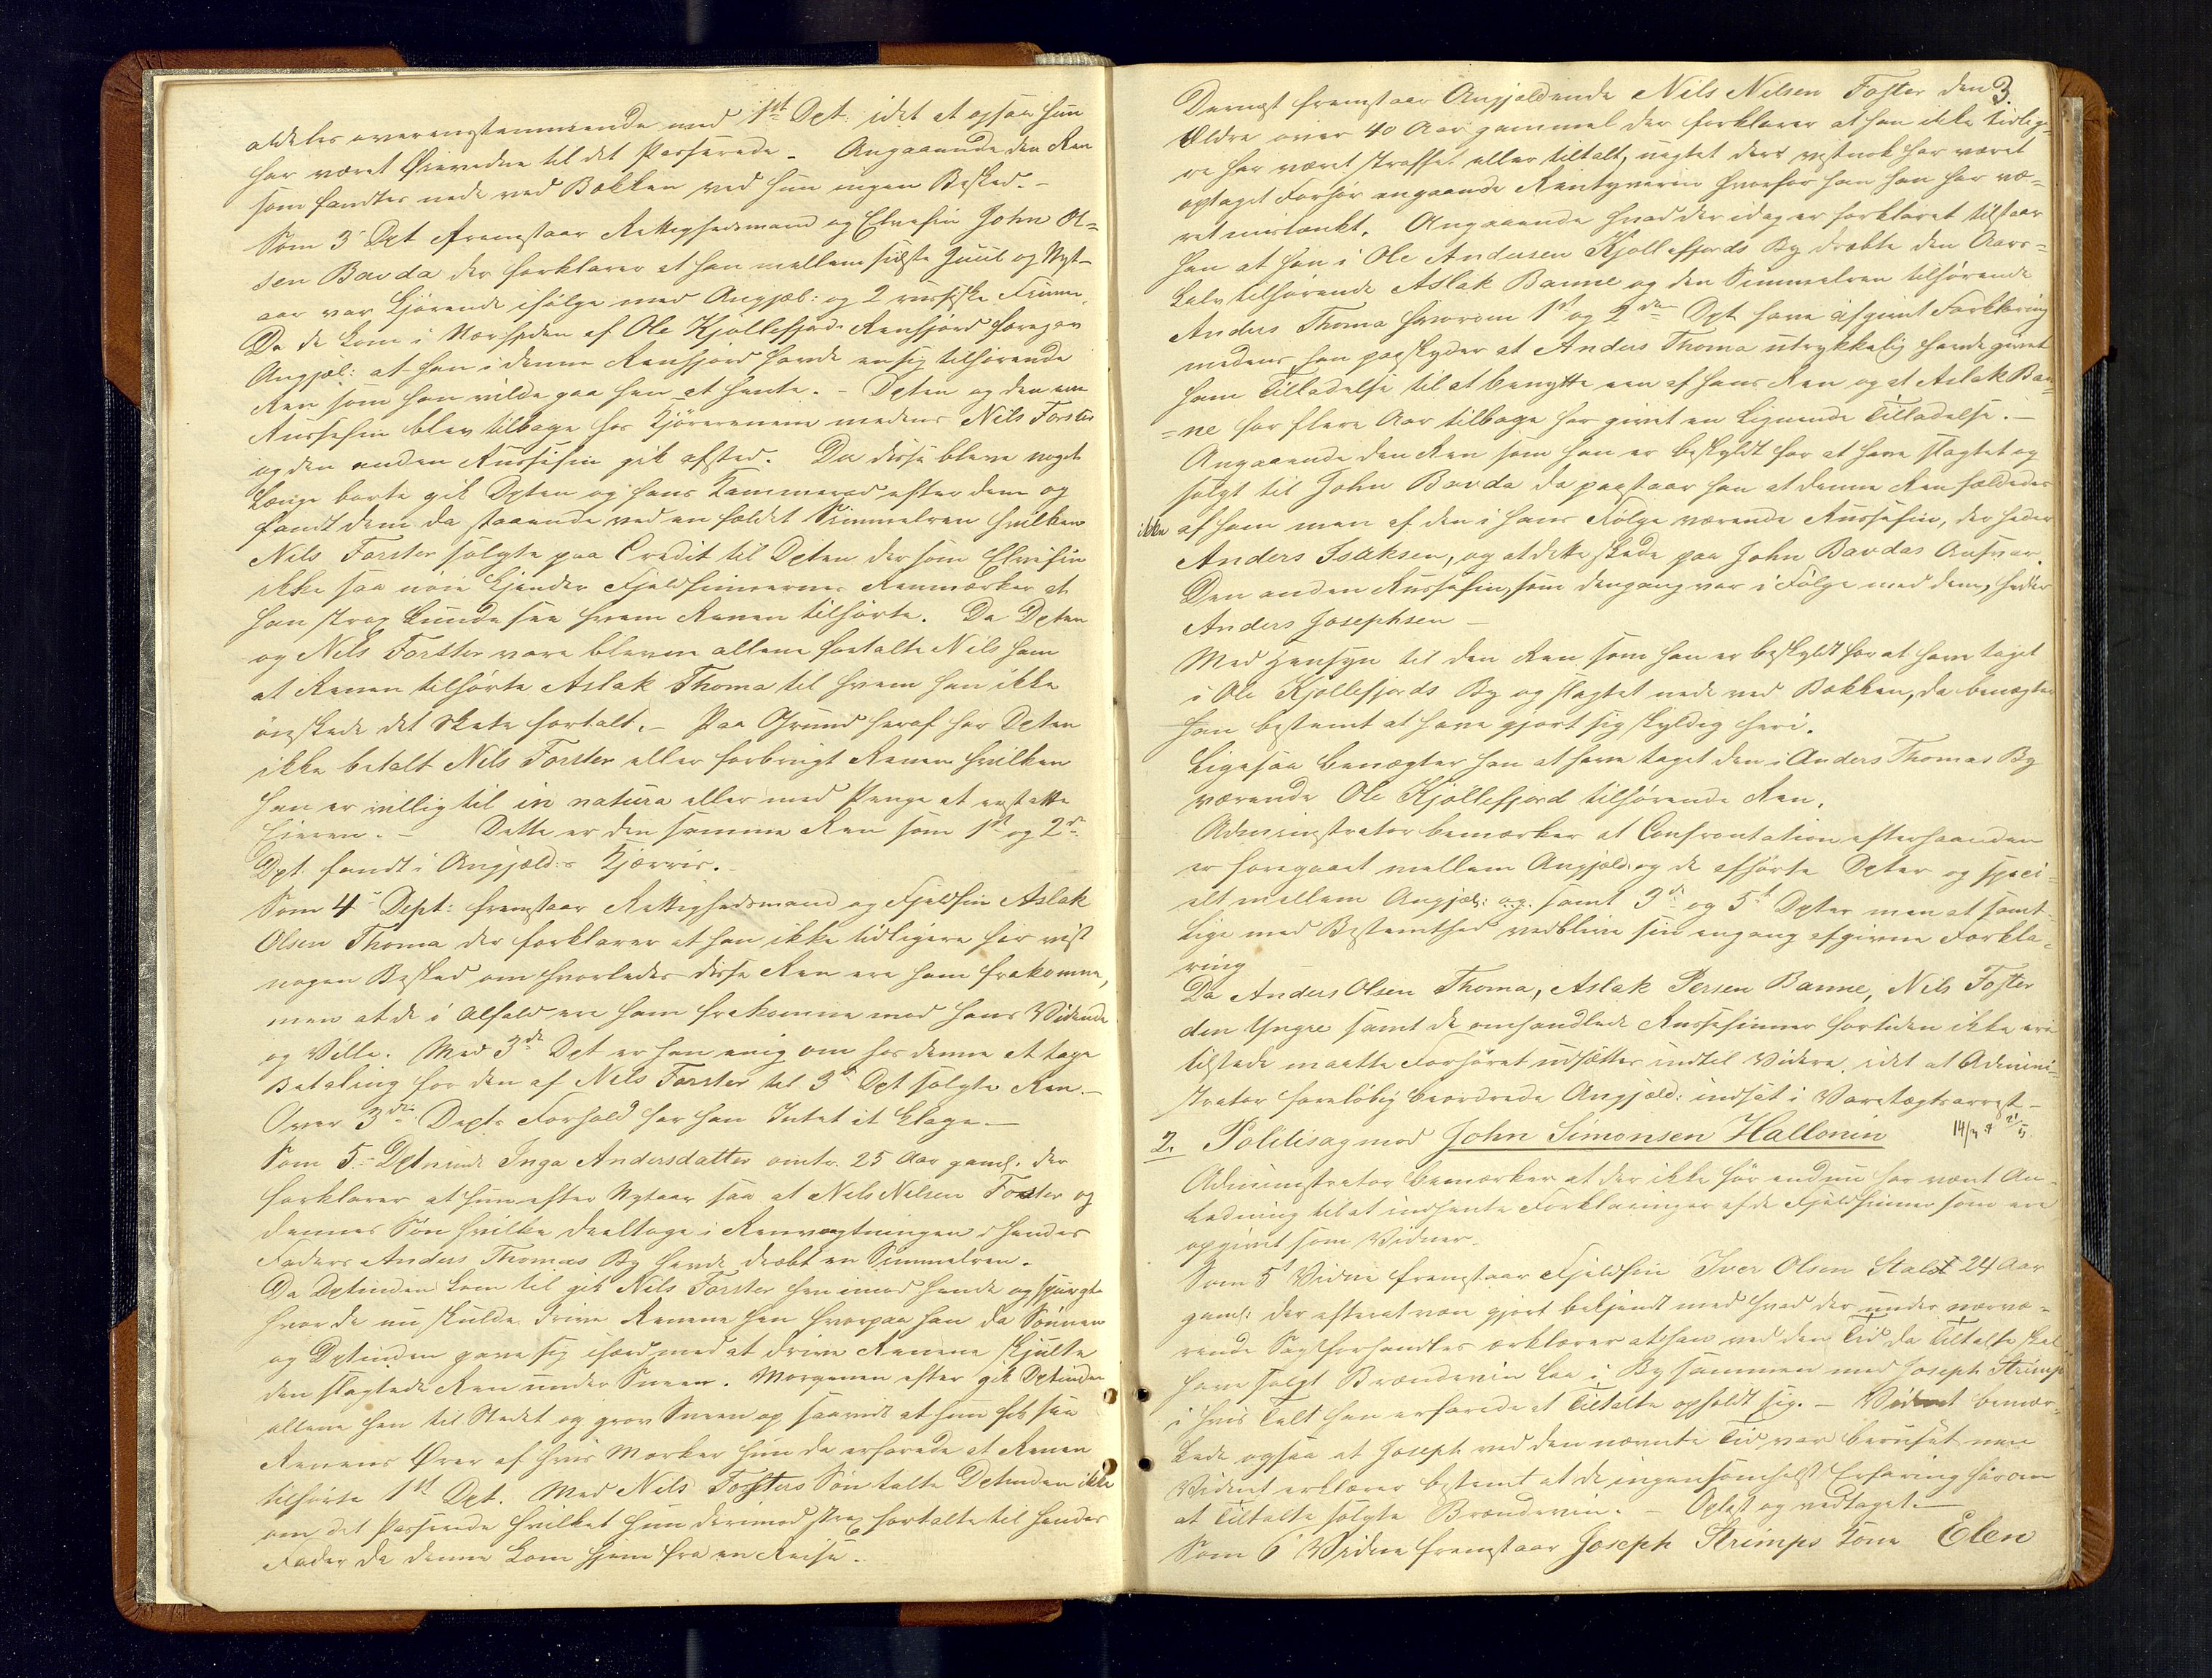 aldeles overensstemmende med 1st Dpt: idet at ogsaa hun
har været Øievidne til det Passerede. Angaaende den Ren
som fandtes nede ved Bækken ved hun ingen Besked. –
Som 3' Dpt fremstaar Rettighedsmand og Elvefin John Ol=
sen Bavda der forklarer at han mellem sidste Juul og Nyt-
aar var kjørende ifølge med Angjæl: og 2 russiske Finner.
Da de kom i Nærheden af Ole Kjøllefjords Renhjord foregav
Angjæl: at han i denne Renhjord havde en sig tilhørende
Ren som han vilde gaa hen at hente. – Dpten og den ene
Russefin blev tilbage hos Kjørerenene medens Nils Forster
og den anden Russefin gik afsted. Da disse bleve noget
længe borte gik Dpten og hans Kammerad efter dem og
fandt dem da staaende ved en fældet Simmelren hvilken
Nils Forster solgte paa Credit til Dpten der som Elvefin
ikke saa nøie kjender Fjeldfinnernes Renmærker at
han strax kunde see hvem Renen tilhørte. Da Dpten
og Nils Forster vare blevne allene fortalte Nils ham
at Renen tilhørte Aslak Thoma til hvem han ikke
ønskede det skete fortalt. – Paa Grund heraf har Dpten
ikke betalt Nils Forster eller forbrugt Renen hvilken
han er villig til in natura eller med Penge at erstatte
Eieren. – Dette er den samme Ren som 1st og 2d
Dpt. fandt i Angjæld:s Kjærris.
Som 4' Dept: fremstaar Rettighedsmand og Fjeldfin Aslak
Olsen Thoma der forklarer at han ikke tidligere har vist
nogen Besked om hvorledes disse Ren ere ham frakomne,
men at de i Alfald ere ham frakomne mod hans Vidende
og Ville. Med 3de Dpt er han enig om hos denne at tage
Betaling for den af Nils Forster til 3d Dpt solgte Ren. –
Over 3die Depts Forhold har han Intet at klage. –
Som 5' Dptinde Inga Andersdatter omtr. 25 Aar gaml. der
forklarer at hun efter Nytaar saa at Nils Nilsen Forster og
dennes Søn hvilke deeltoge i Renvogtningen i hendes
Faders Anders Thomas By havde dræbt en Simmelren.
Da Dptinden kom til gik Nils Forster hen imod hende og spurgte
hvor de nu skulde drive Renene hen hvorpaa han da Sønnen
og Dptinden gave sig ifærd med at drive Renene skjulte
den slagtede Ren under Sneen. Morgenen efter gik Dptinden
allene hen til Stedet og grov Sneen op saavidt at hun fik see
Renens Ører af hvis Mærker hun da erfarede at Renen
tilhørte 1st Dpt. Med Nils Forsters Søn talte Dptinden ikke
om det Passerede hvilket hun derimod strax fortalte til hendes
Fader da denne kom hjem fra en Reise.
3.
Dernæst fremstaar Angjældende Nils Nilsen Foster den
Ældre over 40 Aar gammel der forklarer at han ikke tidlige-
re har været straffet eller tiltalt, uagtet der vistnok har været
optaget Forhør angaaende Rentyverier hvorfor han har væ=
ret mistænkt. Angaaende hvad der idag er forklaret tilstaar
han at han i Ole Andersen Kjøllefjords By dræbte den Aars=
kalv tilhørende Aslak Banne og den Simmelren tilhørende
Anders Thoma hvorom 1st og 2de Dpt have afgivet Forklaring
medens han paaskyder at Anders Thoma utrykkelig havde givet
ham Tilladelse til at benytte een af hans Ren og at Aslak Ban=
=ne for flere Aar tilbage har givet en lignende Tilladelse. –
Angaaende den Ren som han er beskyldt for at have slagtet og
solgt til John Bavda da paastaar han at denne Ren fældedes
ikke af ham men af den i hans Følge værende Russefin, der heder
Anders Isaksen, og at dette skede paa John Bavdas Ansvar.
Den anden Russefin, som dengang var i Følge med dem, heder
Anders Josephsen –
Med Hensyn til den Ren som han er beskyldt for at have taget
i Ole Kjøllefjords By og slagtet nede ved Bækken, da benægter
han bestemt at have gjort sig skyldig heri.
Ligesaa benægter han at have taget den i Anders Thomas By
værende Ole Kjøllefjord tilhørende Ren.
Administrator bemærker at Confrontation efterhaanden
er foregaaet mellem Angjæld: og de afhørte Dpter og speci-
elt mellem Angjæl: og samt 3de og 5t Dpter men at samt-
lige med Bestemthed vedblive sin engang afgivne Forkla-
ring
Da Anders Olsen Thoma, Aslak Persen Banne, Nils Foster
den Yngre samt de omhandlede Russefinner fortiden ikke ere
tilstede maatte Forhøret udsættes indtil Videre, idet at Admini-
strator foreløbig beordrede Angjæld: indsat i Varetægtsarrest –
2. Politisag mod John Simonsen Hallonin
Administrator bemærker at der ikke før endnu har været An-
ledning til at indhente Forklaringer af de Fjeldfinner som ere
opgivet som Vidner.
Som 5t Vidne fremstaar Fjeldfin Iver Olsen Stal 24 Aar
gaml: der efterat være gjort bekjendt med hvad der under nærvæ-
rende Sag forhandles erklærer at han ved den Tid da Tiltalte skal
have solgt Brændeviin laa i By sammen med Joseph Strimp
i hvis Telt han erfarede at Tiltalte opholdt sig. – Vidnet bemær-
kede ogsaa at Joseph ved den nævnte Tid var beruset men
Vidnet erklærer bestemt at de ingensomhelst Erfaring har om
at Tiltalte solgte Brændeviin. – Oplæst og vedtaget. –
Som 6' Vidne fremstaar Joseph Strimps Kone Elen